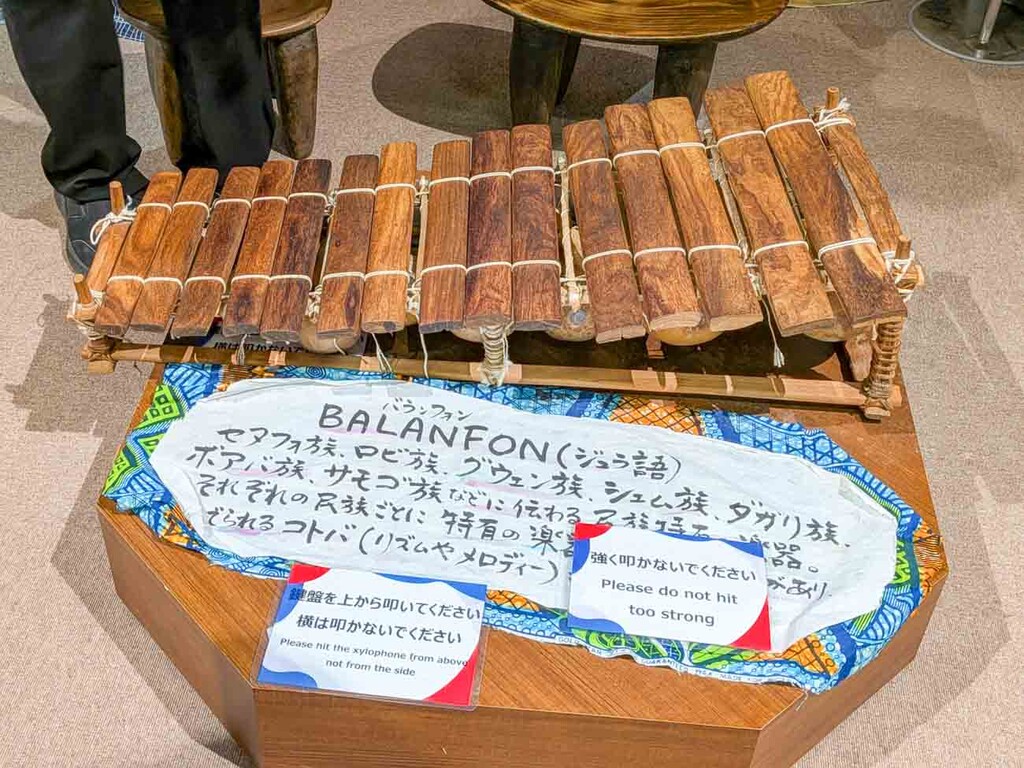 横は叩かないで
バランフォン
BALANFON(ジュラ語)
セヌフォ族、ロビ族、グウェン族、シェム族、ダガリ族、
ボアバ族、サモゴ族などに伝わる民族特有の楽器。
それぞれの民族ごとに特有の楽
でられるコトバ(リズムやメロディー)
があり
強く叩かないでください
Please do not hit
too strong
鍵盤を上から叩いてください
横は叩かないでください
Please hit the xylophone from above
not from the side